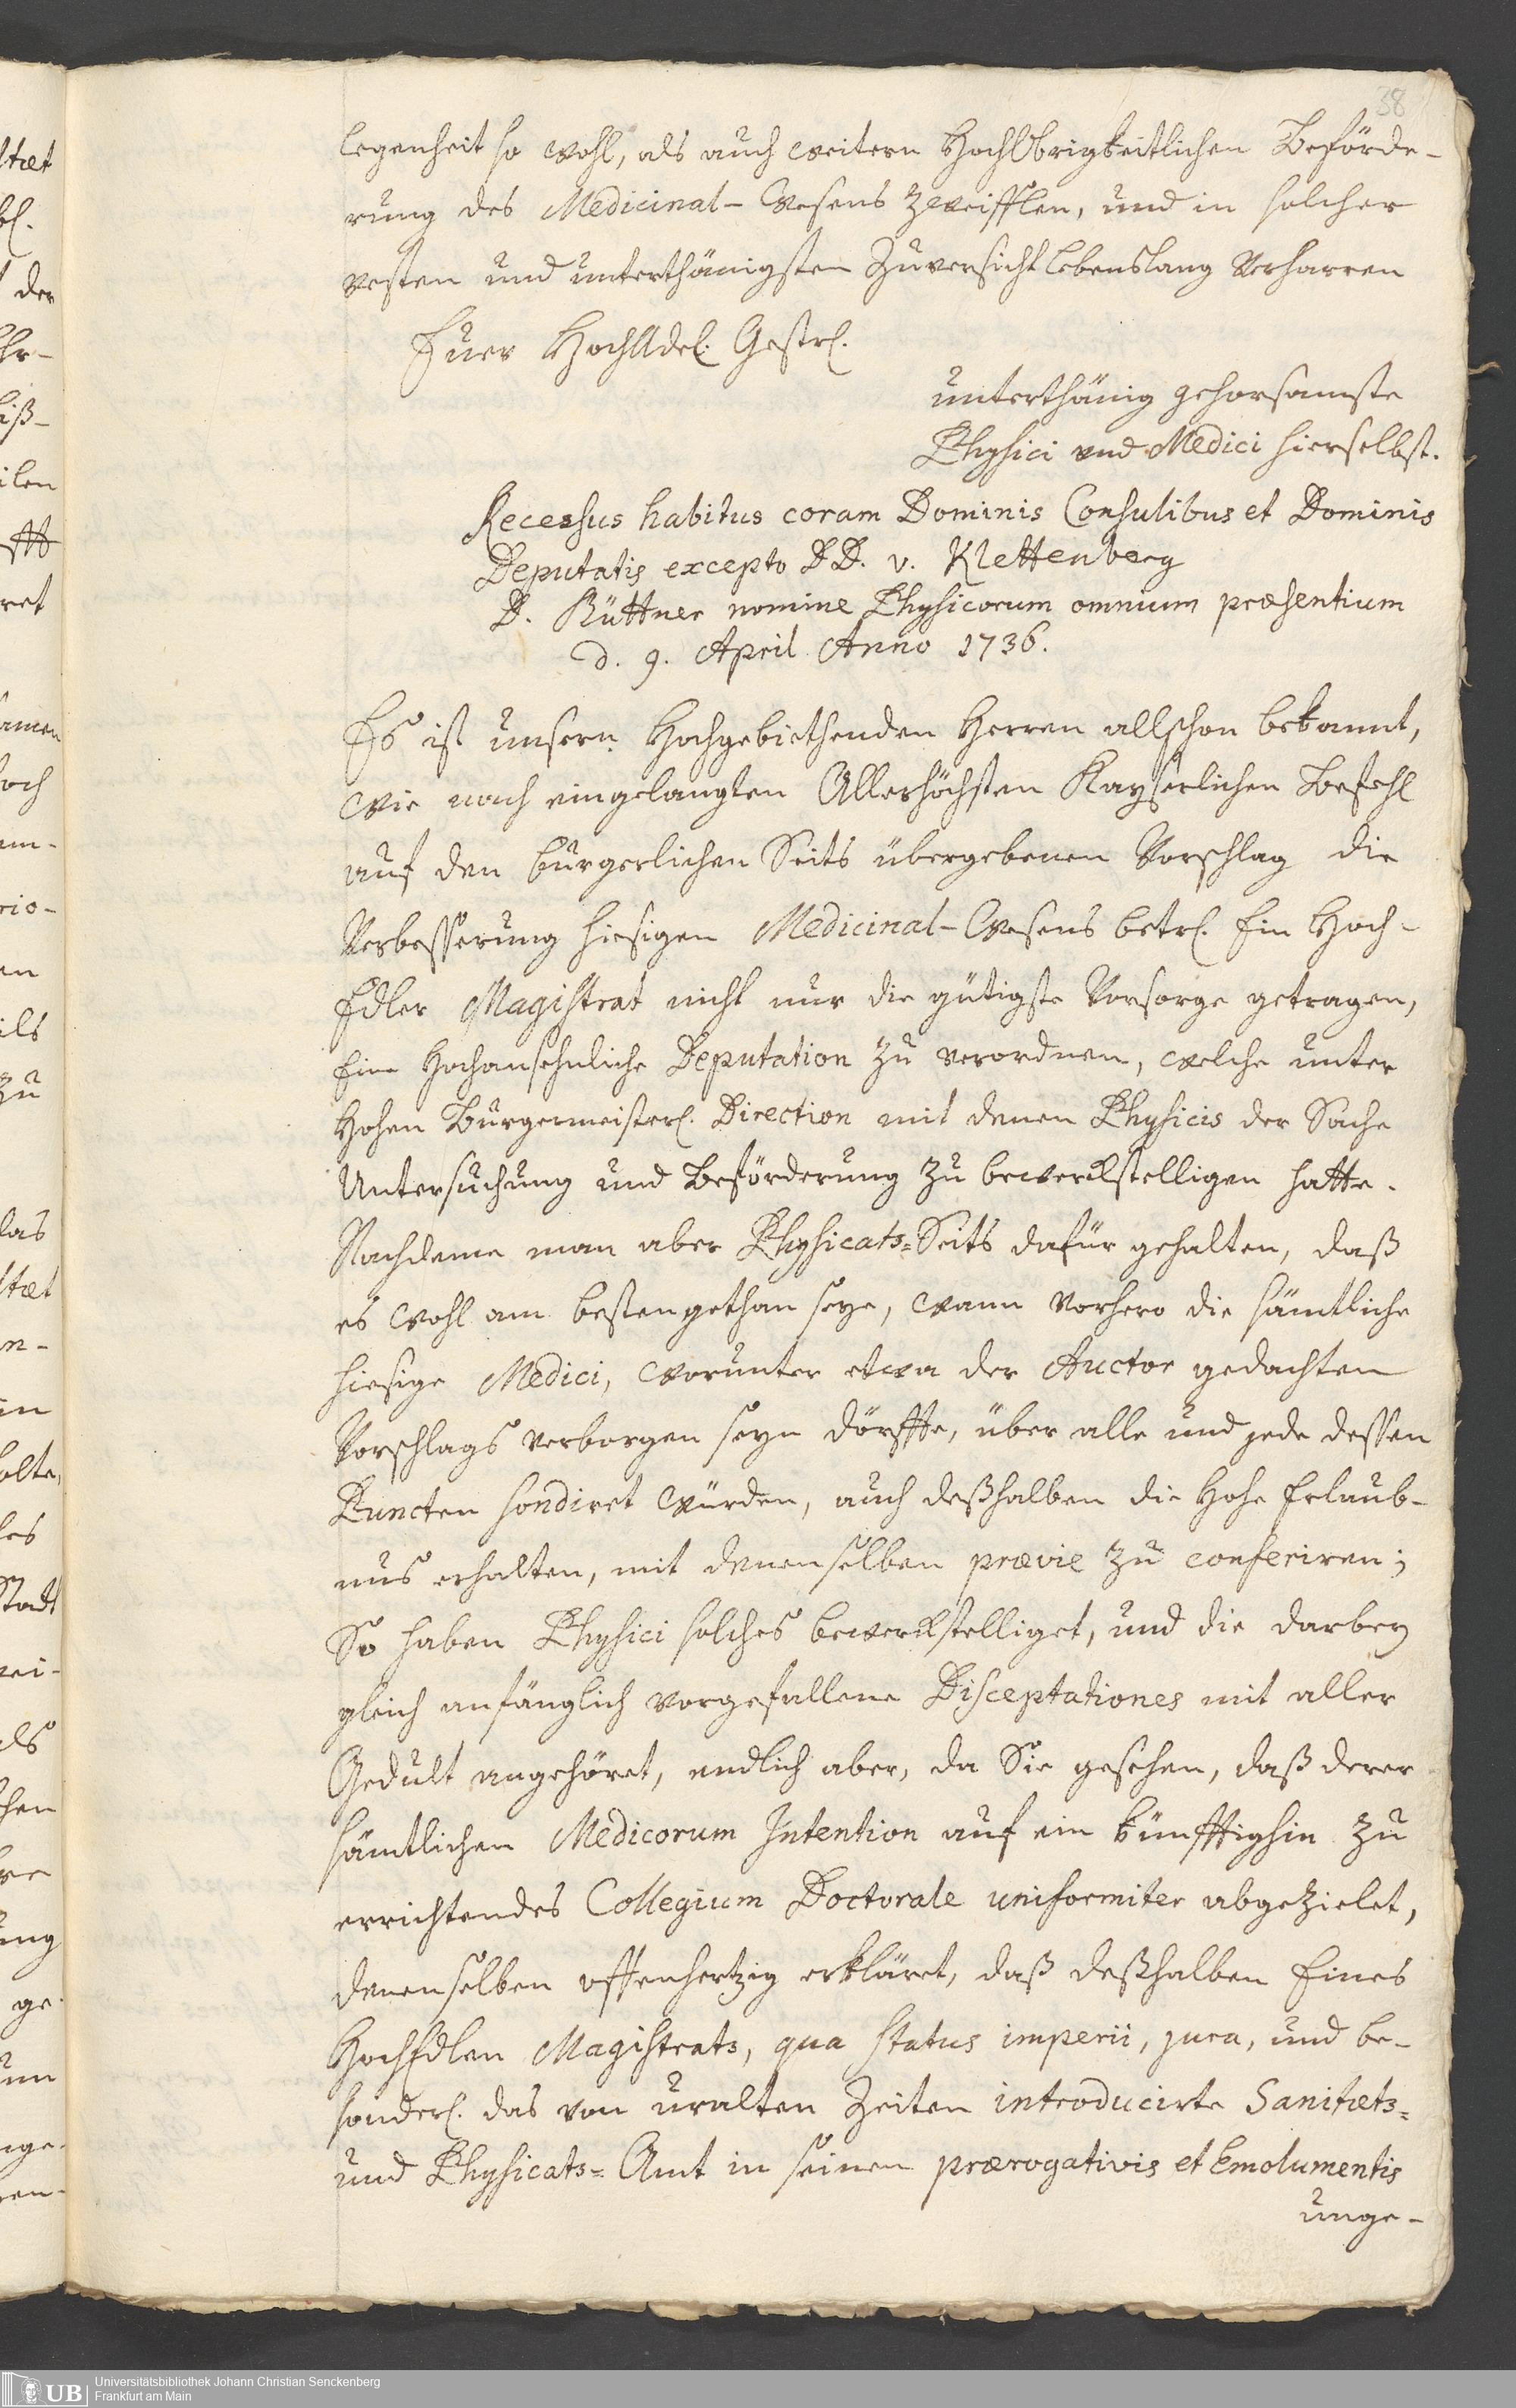 38
legenheit so wohl, als auch weitern HochObrigkeitlichen Beförde-
rung des Medicinal-Wesens zweifflen, und in solcher
vesten und unterthänigsten Zuversicht lebenslang verharren
Euer HochAdel. Gestrl.
unterthänig gehorsamste
Physici und Medici hierselbst.
Recessus habitus coram Dominis Consulibus et Dominis
Deputatis excepto DD. v. Klettenberg
D. Büttner nomine Physicorum omnium præsentium
d. 9. April Anno 1736.
Es ist unsern Hochgebiethenden Herren allschon bekannt,
wie nach eingelangten Allerhöchsten Kayserlichen Befehl
auf den bürgerlichen Seits übergebenen Vorschlag die
Verbesserung hiesigen Medicinal-Wesens betrl. Ein Hoch-
Edler Magistrat nicht nur die gütigste Vorsorge getragen,
Eine Hochansehnliche Deputation zu verordnen, welche unter
Hohen Burgermeisterl. Direction mit denen Physicis der Sache
Untersuchung und Beförderung zu bewerckstelligen hatte.
Nachdeme man aber Physicats=Seits dafür gehalten, daß
es wohl am besten gethan seye, wann vorhero die sämtliche
hiesige Medici, worunter etwa der Auctor gedachten
Vorschlags verborgen seyn dörffte, über alle und jede dessen
Puncten sondiret würden, auch deßhalben die Hohe Erlaub-
nus erhalten, mit denenselben prævie zu conferiren;
So haben Physici solches bewerckstelliget, und die darbey
gleich anfänglich vorgefallene Disceptationes mit aller
Gedult angehöret, endlich aber, da Sie gesehen, daß derer
sämtlichen Medicorum Intention auf ein künfftighin zu
errichtendes Collegium Doctorale uniformiter abgezielet,
denenselben offenhertzig erkläret, daß deßhalben Eines
HochEdlen Magistrats, qua status imperii, jura, und be-
sonderl. das von uralten Zeiten introducirte Sanitæts=
und Physicats=Amt in seinen prærogativis et Emolumentis
unge-
UB
Universitätsbibliothek Johann Christian Senckenberg
Frankfurt am Main